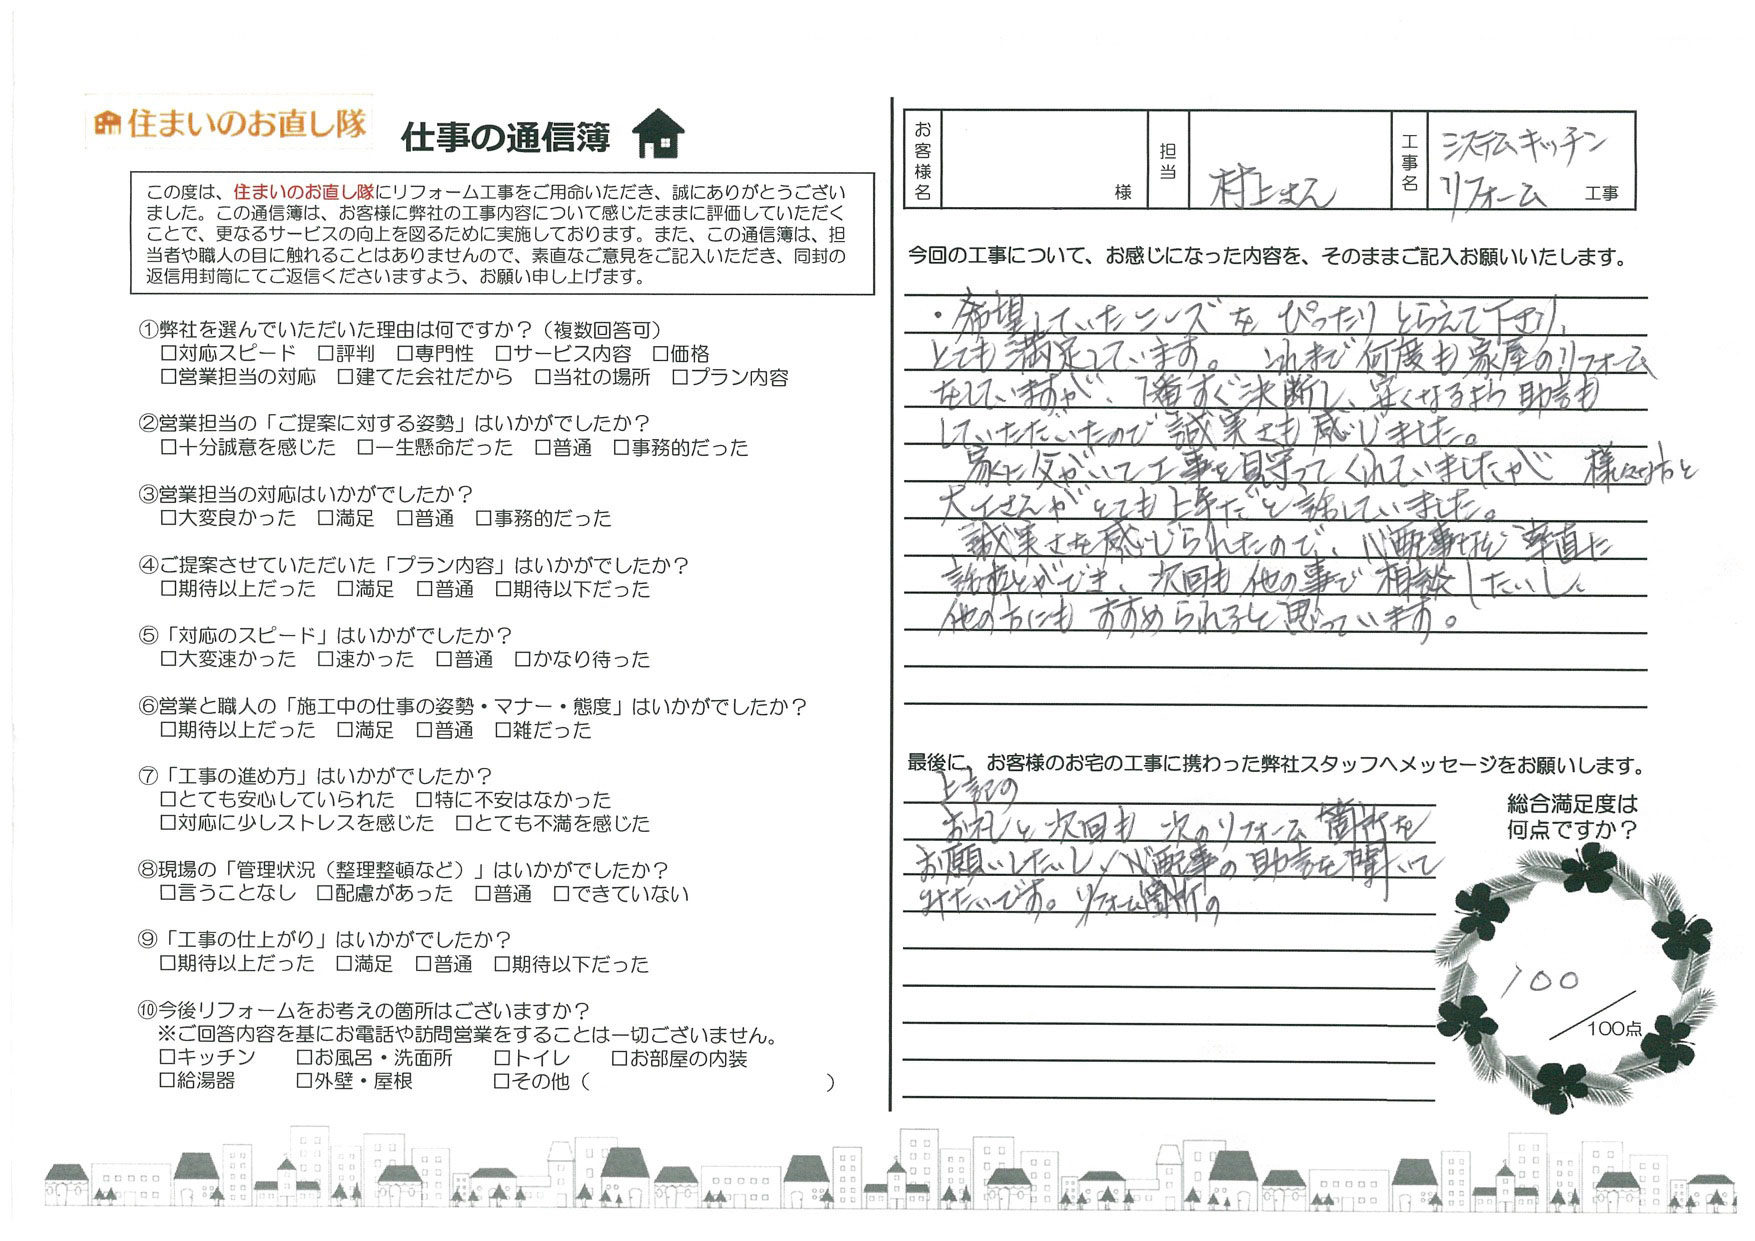 住まいのお直し隊
仕事の通信簿
この度は、住まいのお直し隊にリフォーム工事をご用命いただき、誠にありがとうござい
ました。この通信簿は、お客様に弊社の工事内容について感じたままに評価していただく
ことで、更なるサービスの向上を図るために実施しております。また、この通信簿は、担
当者や職人の目に触れることはありませんので、素直なご意見をご記入いただき、同封の
返信用封筒にてご返信くださいますよう、お願い申し上げます。
①弊社を選んでいただいた理由は何ですか？（複数回答可）
□対応スピード　□評判　□専門性　□サービス内容　□価格
□営業担当の対応　□建てた会社だから　□当社の場所　□プラン内容
②営業担当の「ご提案に対する姿勢」はいかがでしたか？
□十分誠意を感じた　□一生懸命だった　□普通　□事務的だった
③営業担当の対応はいかがでしたか？
□大変良かった　□満足　□普通　□事務的だった
④ご提案させていただいた「プラン内容」はいかがでしたか？
□期待以上だった　□満足　□普通　□期待以下だった
⑤「対応のスピード」はいかがでしたか？
□大変速かった　□速かった　□普通　□かなり待った
⑥営業と職人の「施工中の仕事の姿勢・マナー・態度」はいかがでしたか？
□期待以上だった　□満足　□普通　□雑だった
⑦「工事の進め方」はいかがでしたか？
□とても安心していられた　□特に不安はなかった
□対応に少しストレスを感じた　□とても不満を感じた
⑧現場の「管理状況（整理整頓など）」はいかがでしたか？
□言うことなし　□配慮があった　□普通　□できていない
⑨「工事の仕上がり」はいかがでしたか？
□期待以上だった　□満足　□普通　□期待以下だった
⑩今後リフォームをお考えの箇所はございますか？
※ご回答内容を基にお電話や訪問営業をすることは一切ございません。
□キッチン　□お風呂・洗面所　□トイレ　□お部屋の内装
□給湯器　□外壁・屋根　□その他（　　　）
お客様名　様　担当　村上さん　工事名　システムキッチン
リフォーム　工事
今回の工事について、お感じになった内容を、そのままご記入お願いいたします。
・希望していたニーズを ぴったり とらえて下さり、
とても満足しています。 これまで何度も家屋のリフォーム
をしていますが、1番すぐ決断し、安くなるよう助言も
していただいたので誠実さも感じました。
家に友がいて工事を見守ってくれていましたが
大工さんがとても上手だと話していました。
誠実さを感じられたので、心配事など率直に
話すことができ、次回も他の事で相談したいし、
他の方にもすすめられると思っています。
最後に、お客様のお宅の工事に携わった弊社スタッフへメッセージをお願いします。
上記の
お礼と次回も 次のリフォーム箇所を
お願いしたいし、心配事の助言を聞いて
みたいです。リフォーム箇所の
総合満足度は
何点ですか？
100
／100点